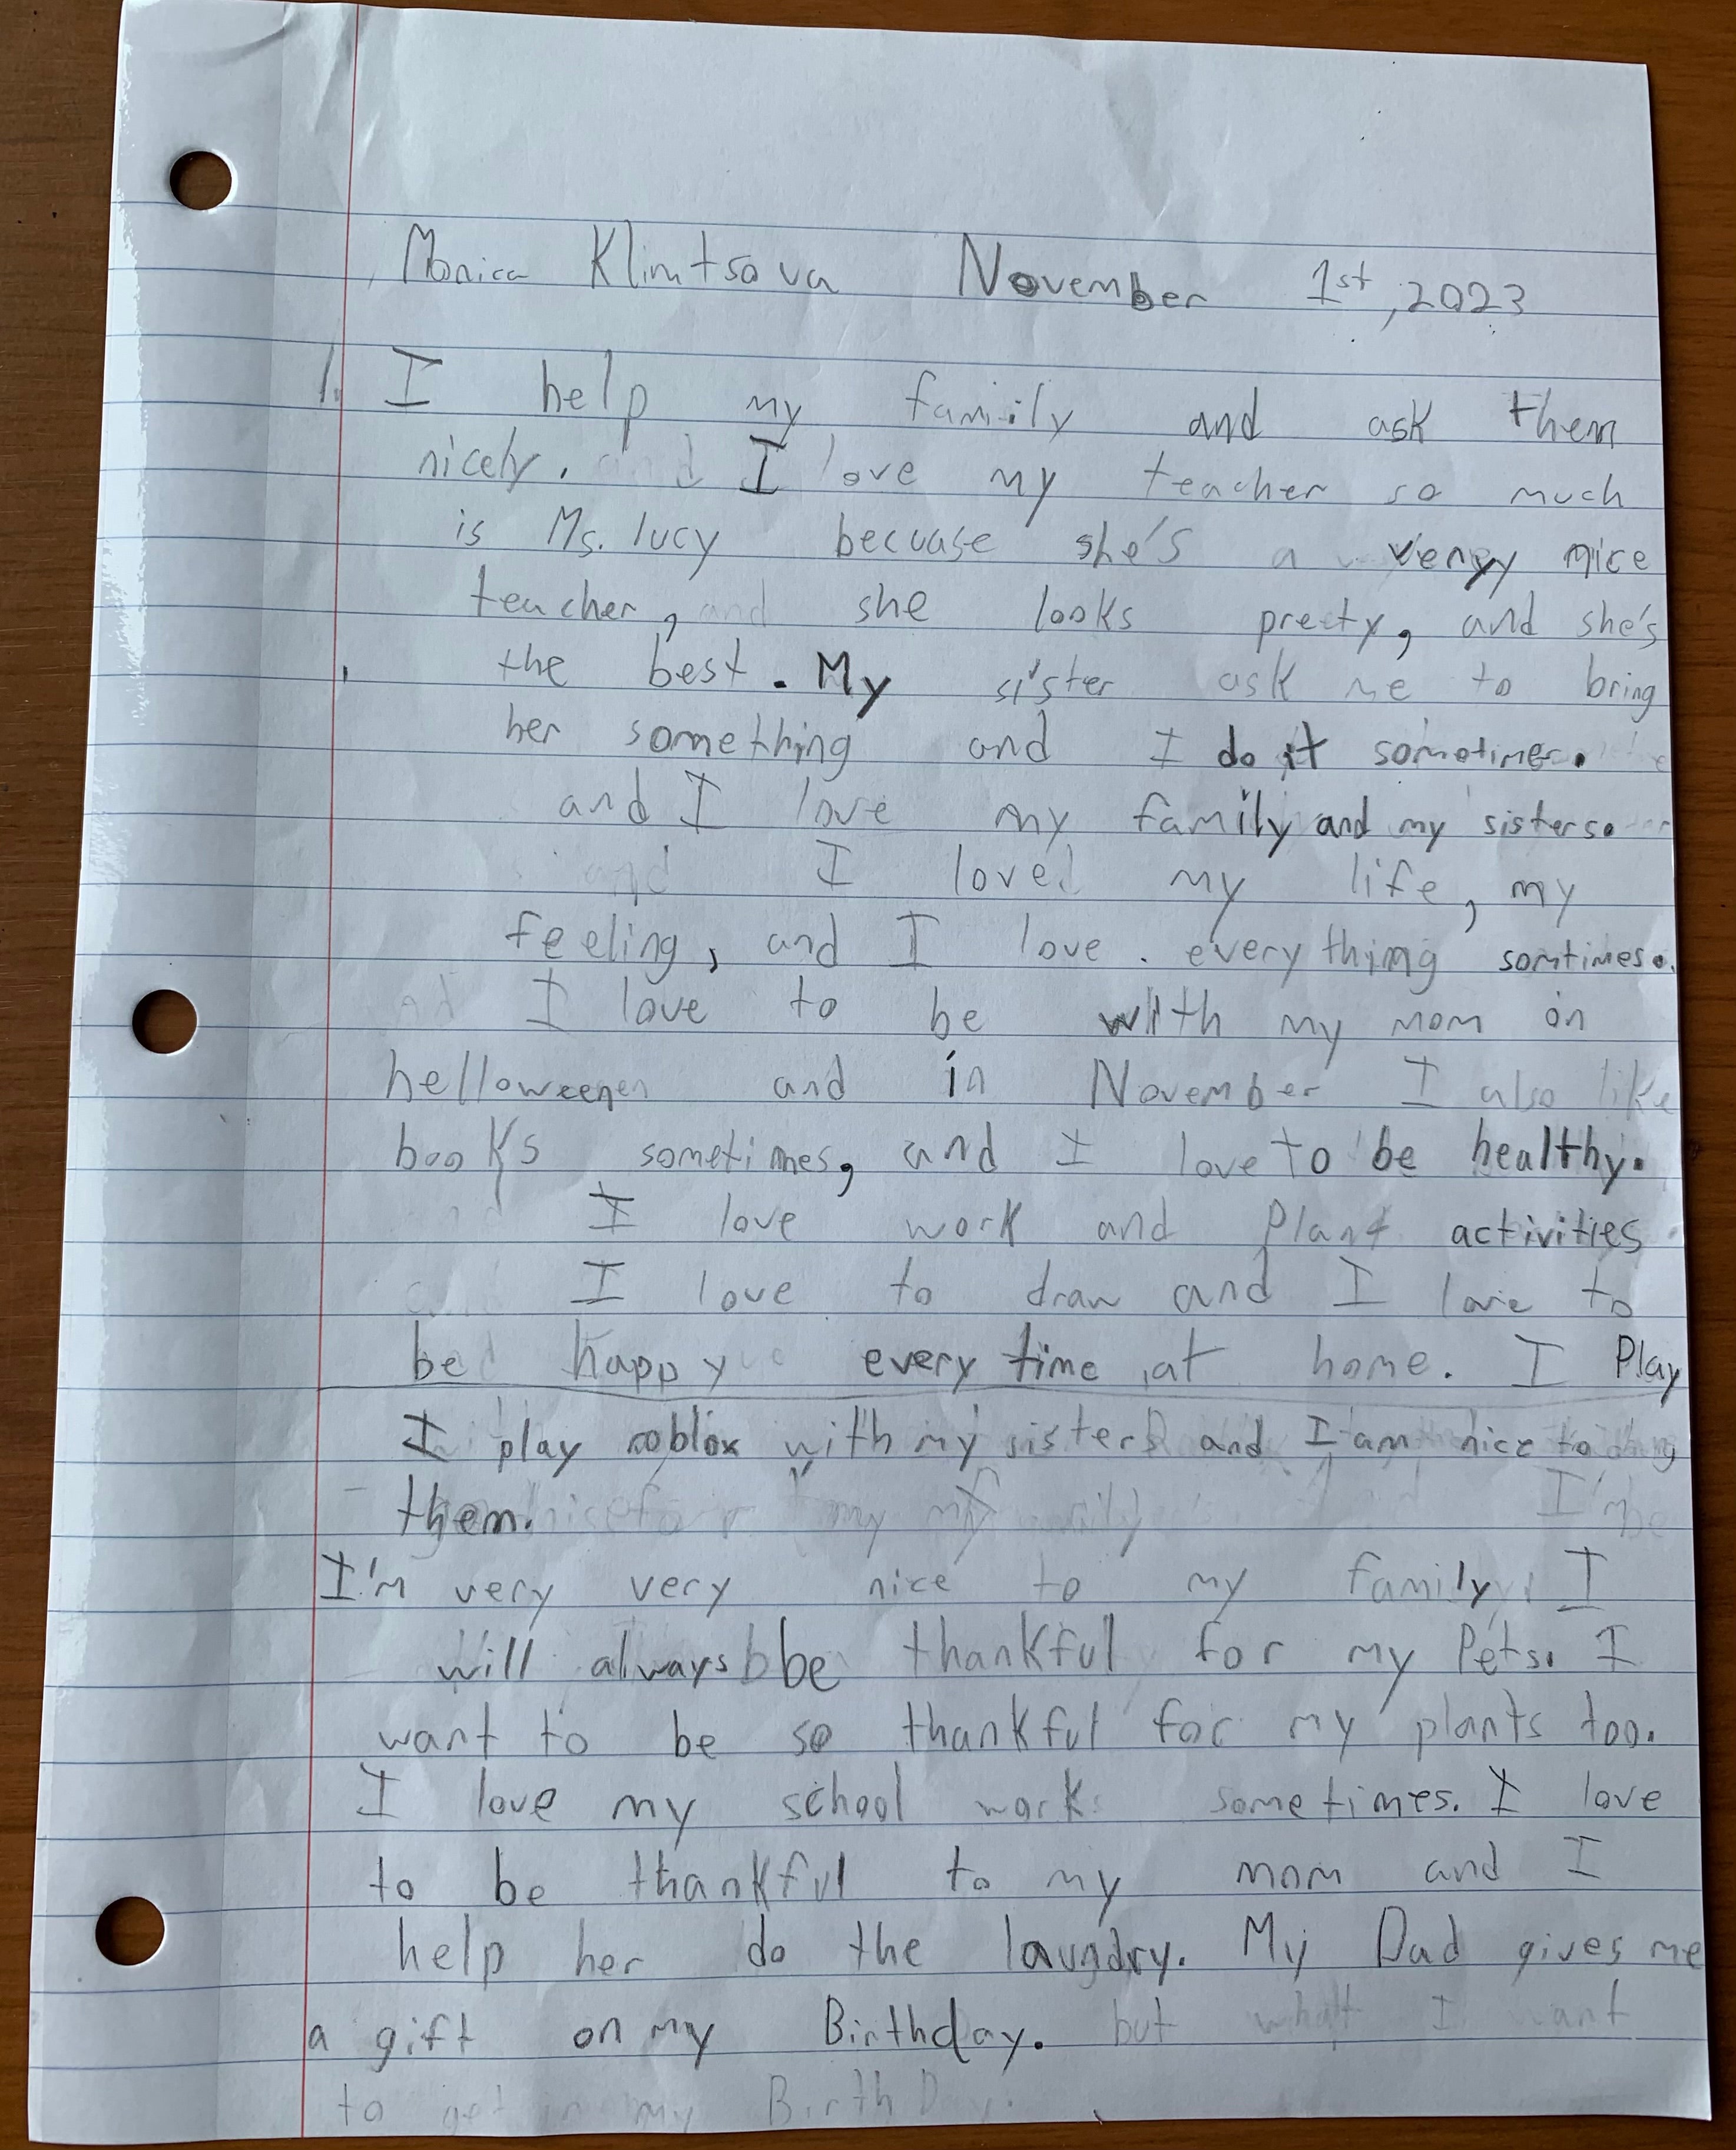 Monica Klimtsova November 1st, 2023
1. I help my family and ask them
nicely. and I love my teacher so much
is Ms. lucy becuase she's a very nice
teacher, and she looks preety, and she's
the best. My sister ask me to bring
her something and I do it sometimes.
and I love my family and my sisters.
and I loved my life, my
feeling, and I love. everything somtimes.
I love to be with my mom on
helloweenen and in November I also like
books sometimes, and I love to be healthy.
I love work and Plant activities
I love to draw and I love to
be happy every time at home. I Play
I play roblox with my sisters and I am nice to
them.
I'm very very nice to my family. I
will always b be thankful for my Pets. I
want to be so thankful for my plants too.
I love my school work sometimes. I love
to be thankful to my mom and I
help her do the laugdry. My Dad gives me
a gift on my Birthday. but what I want
to get in my BirthDay.